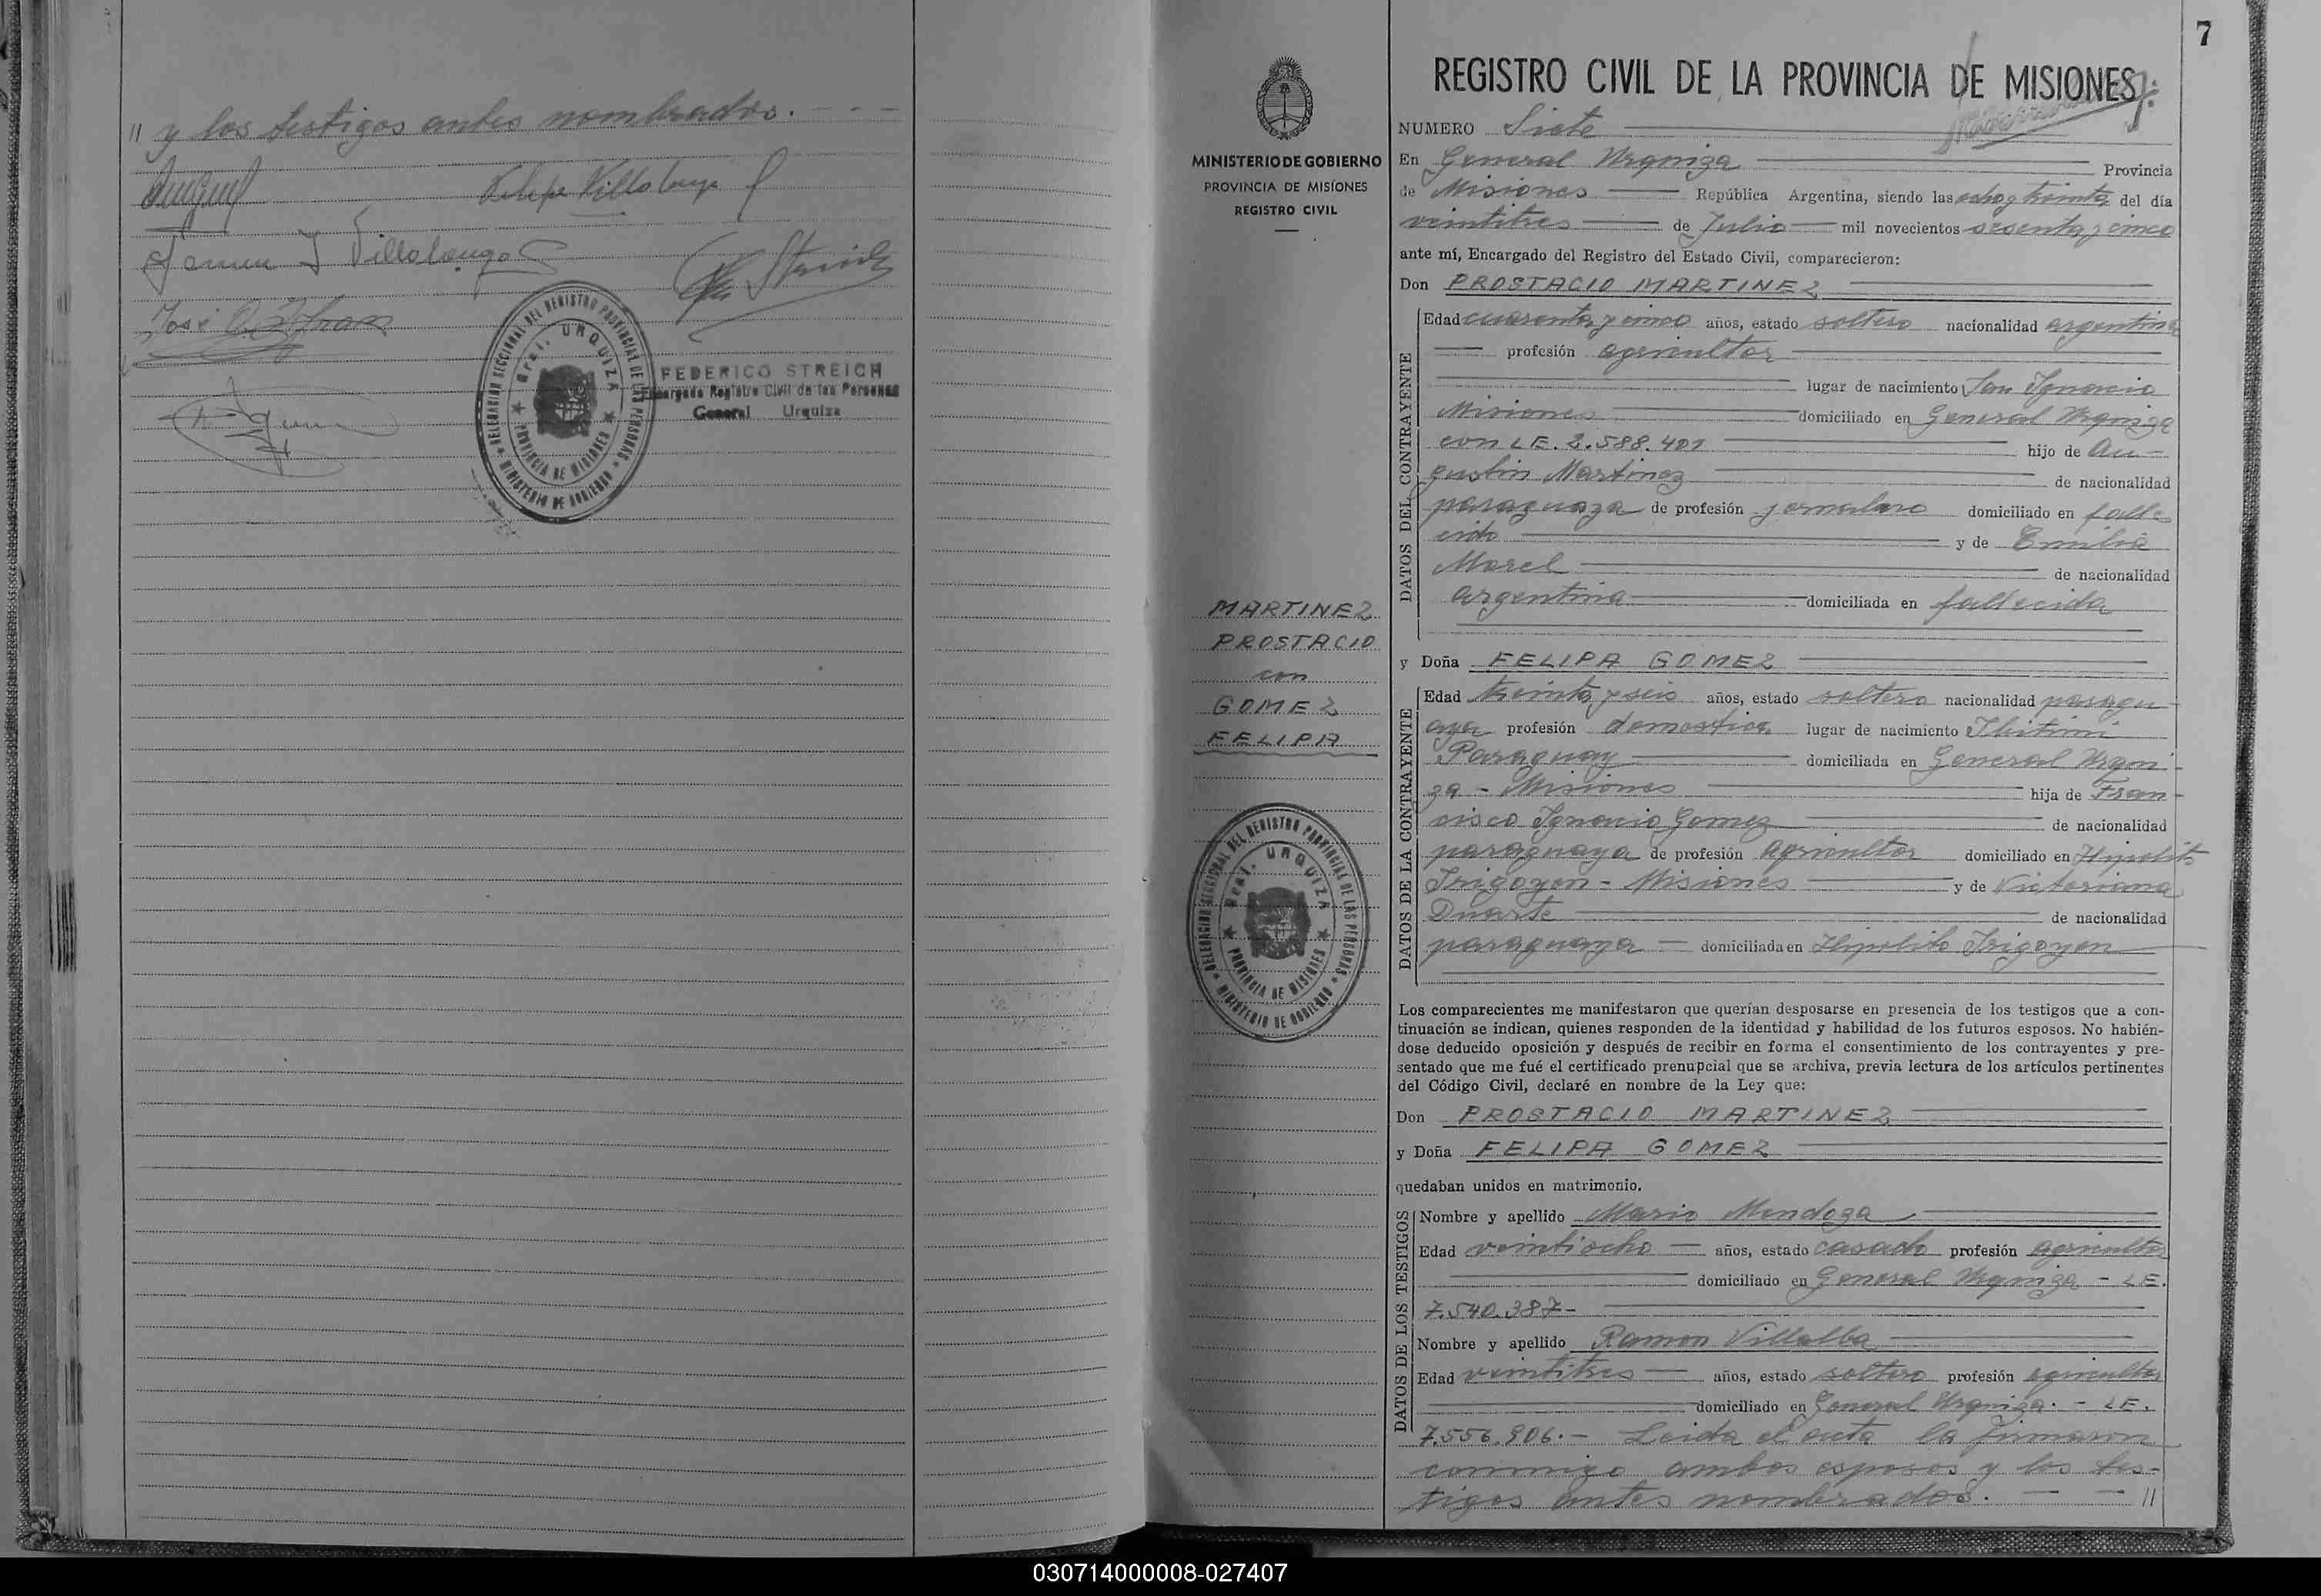 " y los testigos antes nombrados. - - -
Felipe Villalonga
Villalonga
José
FEDERICO STREICH
Encargado Registro Civil de las Personas
General Urquiza
DELEGACION SECCIONAL DEL REGISTRO PROVINCIAL DE LAS PERSONAS
Gral. URQUIZA
PROVINCIA DE MISIONES
MINISTERIO DE GOBIERNO
7
MINISTERIO DE GOBIERNO
PROVINCIA DE MISIONES
REGISTRO CIVIL
MARTINEZ
PROSTACIO
con
GOMEZ
FELIPA
DELEGACION SECCIONAL DEL REGISTRO PROVINCIAL DE LAS PERSONAS
Gral. URQUIZA
PROVINCIA DE MISIONES
MINISTERIO DE GOBIERNO
REGISTRO CIVIL DE LA PROVINCIA DE MISIONES
NUMERO Siete
En General Urquiza Provincia
de Misiones República Argentina, siendo las ocho y treinta del día
veintitres de Julio mil novecientos sesenta y cinco
ante mí, Encargado del Registro del Estado Civil, comparecieron:
Don PROSTACIO MARTINEZ
DATOS DEL CONTRAYENTE
Edad cuarenta y cinco años, estado soltero nacionalidad argentina
profesión agricultor
lugar de nacimiento San Ignacio
Misiones domiciliado en General Urquiza
con L.E. 2.588.401 hijo de Au-
gustin Martinez de nacionalidad
paraguaya de profesión jornalero domiciliado en falle
cido y de Emilia
Morel de nacionalidad
argentina domiciliada en fallecida
y Doña FELIPA GOMEZ
DATOS DE LA CONTRAYENTE
Edad treinta y seis años, estado soltera nacionalidad paragu
aya profesión domestica lugar de nacimiento Ibitimi
Paraguay domiciliada en General Urqui-
za - Misiones hija de Fran-
cisco Ignacio Gomez de nacionalidad
paraguaya de profesión agricultor domiciliado en Hipolito
Irigoyen - Misiones y de Victoriana
Duarte de nacionalidad
paraguaya domiciliada en Hipolito Irigoyen
Los comparecientes me manifestaron que querían desposarse en presencia de los testigos que a con-
tinuación se indican, quienes responden de la identidad y habilidad de los futuros esposos. No habién-
dose deducido oposición y después de recibir en forma el consentimiento de los contrayentes y pre-
sentado que me fué el certificado prenupcial que se archiva, previa lectura de los artículos pertinentes
del Código Civil, declaré en nombre de la Ley que:
Don PROSTACIO MARTINEZ
y Doña FELIPA GOMEZ
quedaban unidos en matrimonio.
DATOS DE LOS TESTIGOS
Nombre y apellido Mario Mendoza
Edad veintiocho años, estado casado profesión agricultor
domiciliado en General Urquiza - L.E.
7.540.387-
Nombre y apellido Ramon Villalba
Edad veintitres años, estado soltero profesión agricultor
domiciliado en General Urquiza. - L.E.
7.556.906.- Leida el acta la firmaron
conmigo ambos esposos y los tes-
tigos antes nombrados. - - "
030714000008-027407